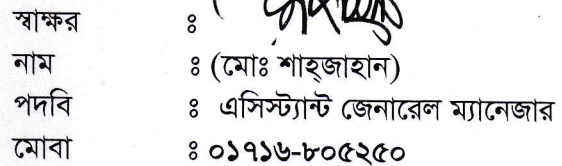 স্বাক্ষর ঃ
নাম ঃ (মোঃ শাহ্জাহান)
পদবি ঃ এসিস্ট্যান্ট জেনারেল ম্যানেজার
মোবা ঃ ০১৭১৬-৮০৫২৫০